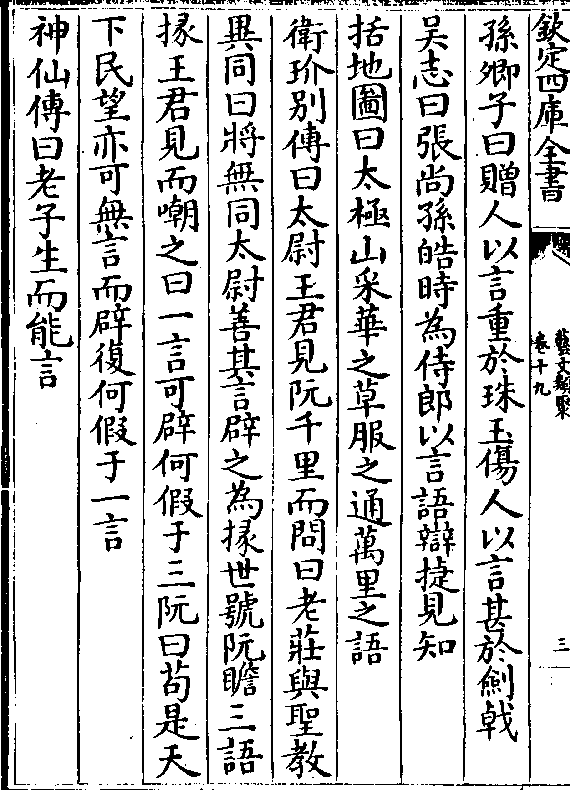 欽定四庫全書
藝文類聚
卷十九
三
孫卿子曰贈人以言重於珠玉傷人以言甚於劍戟
吳志曰張尚孫皓時為侍郎以言語辯捷見知
括地圖曰太極山采華之草服之通萬里之語
衛玠別傳曰太尉王君見阮千里而問曰老莊與聖教
異同曰將無同太尉善其言辟之為掾世號阮瞻三語
掾王君見而嘲之曰一言可辟何假于三阮曰苟是天
下民望亦可無言而辟復何假于一言
神仙傳曰老子生而能言